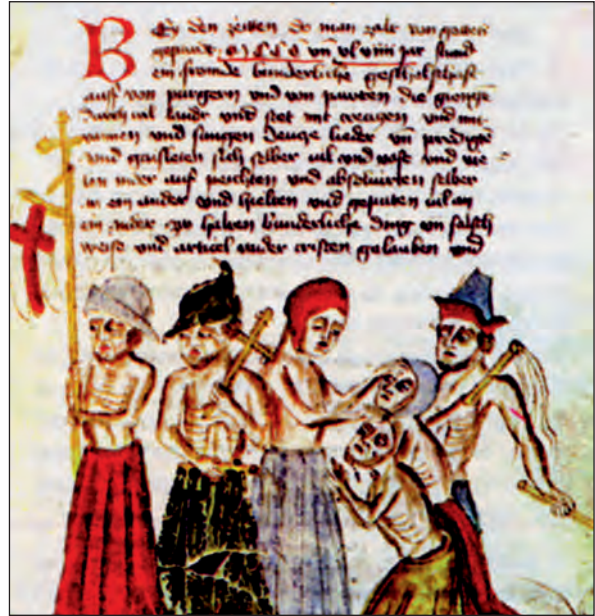 Bey den zeitten do man zalt von gottes
gepurdt vn xlviiii jar stund
ein fromde bunderliche geselschaft
auff von purgern vnd von pauren die giengen
durch vil landt vnd stet mit creuzen vnd mit
vannen vnd sungen deuze lieder vn predigt
vnd gaisleten sich selber vil vnd vast vnd
ein ander auf peichten vnd absoluirten selber
in ein ander vnd hielten vnd geputen vil an
ein ander zu halten bunderliche ding vn falsch
weise vnd articel vnder cristen gelauben vnd